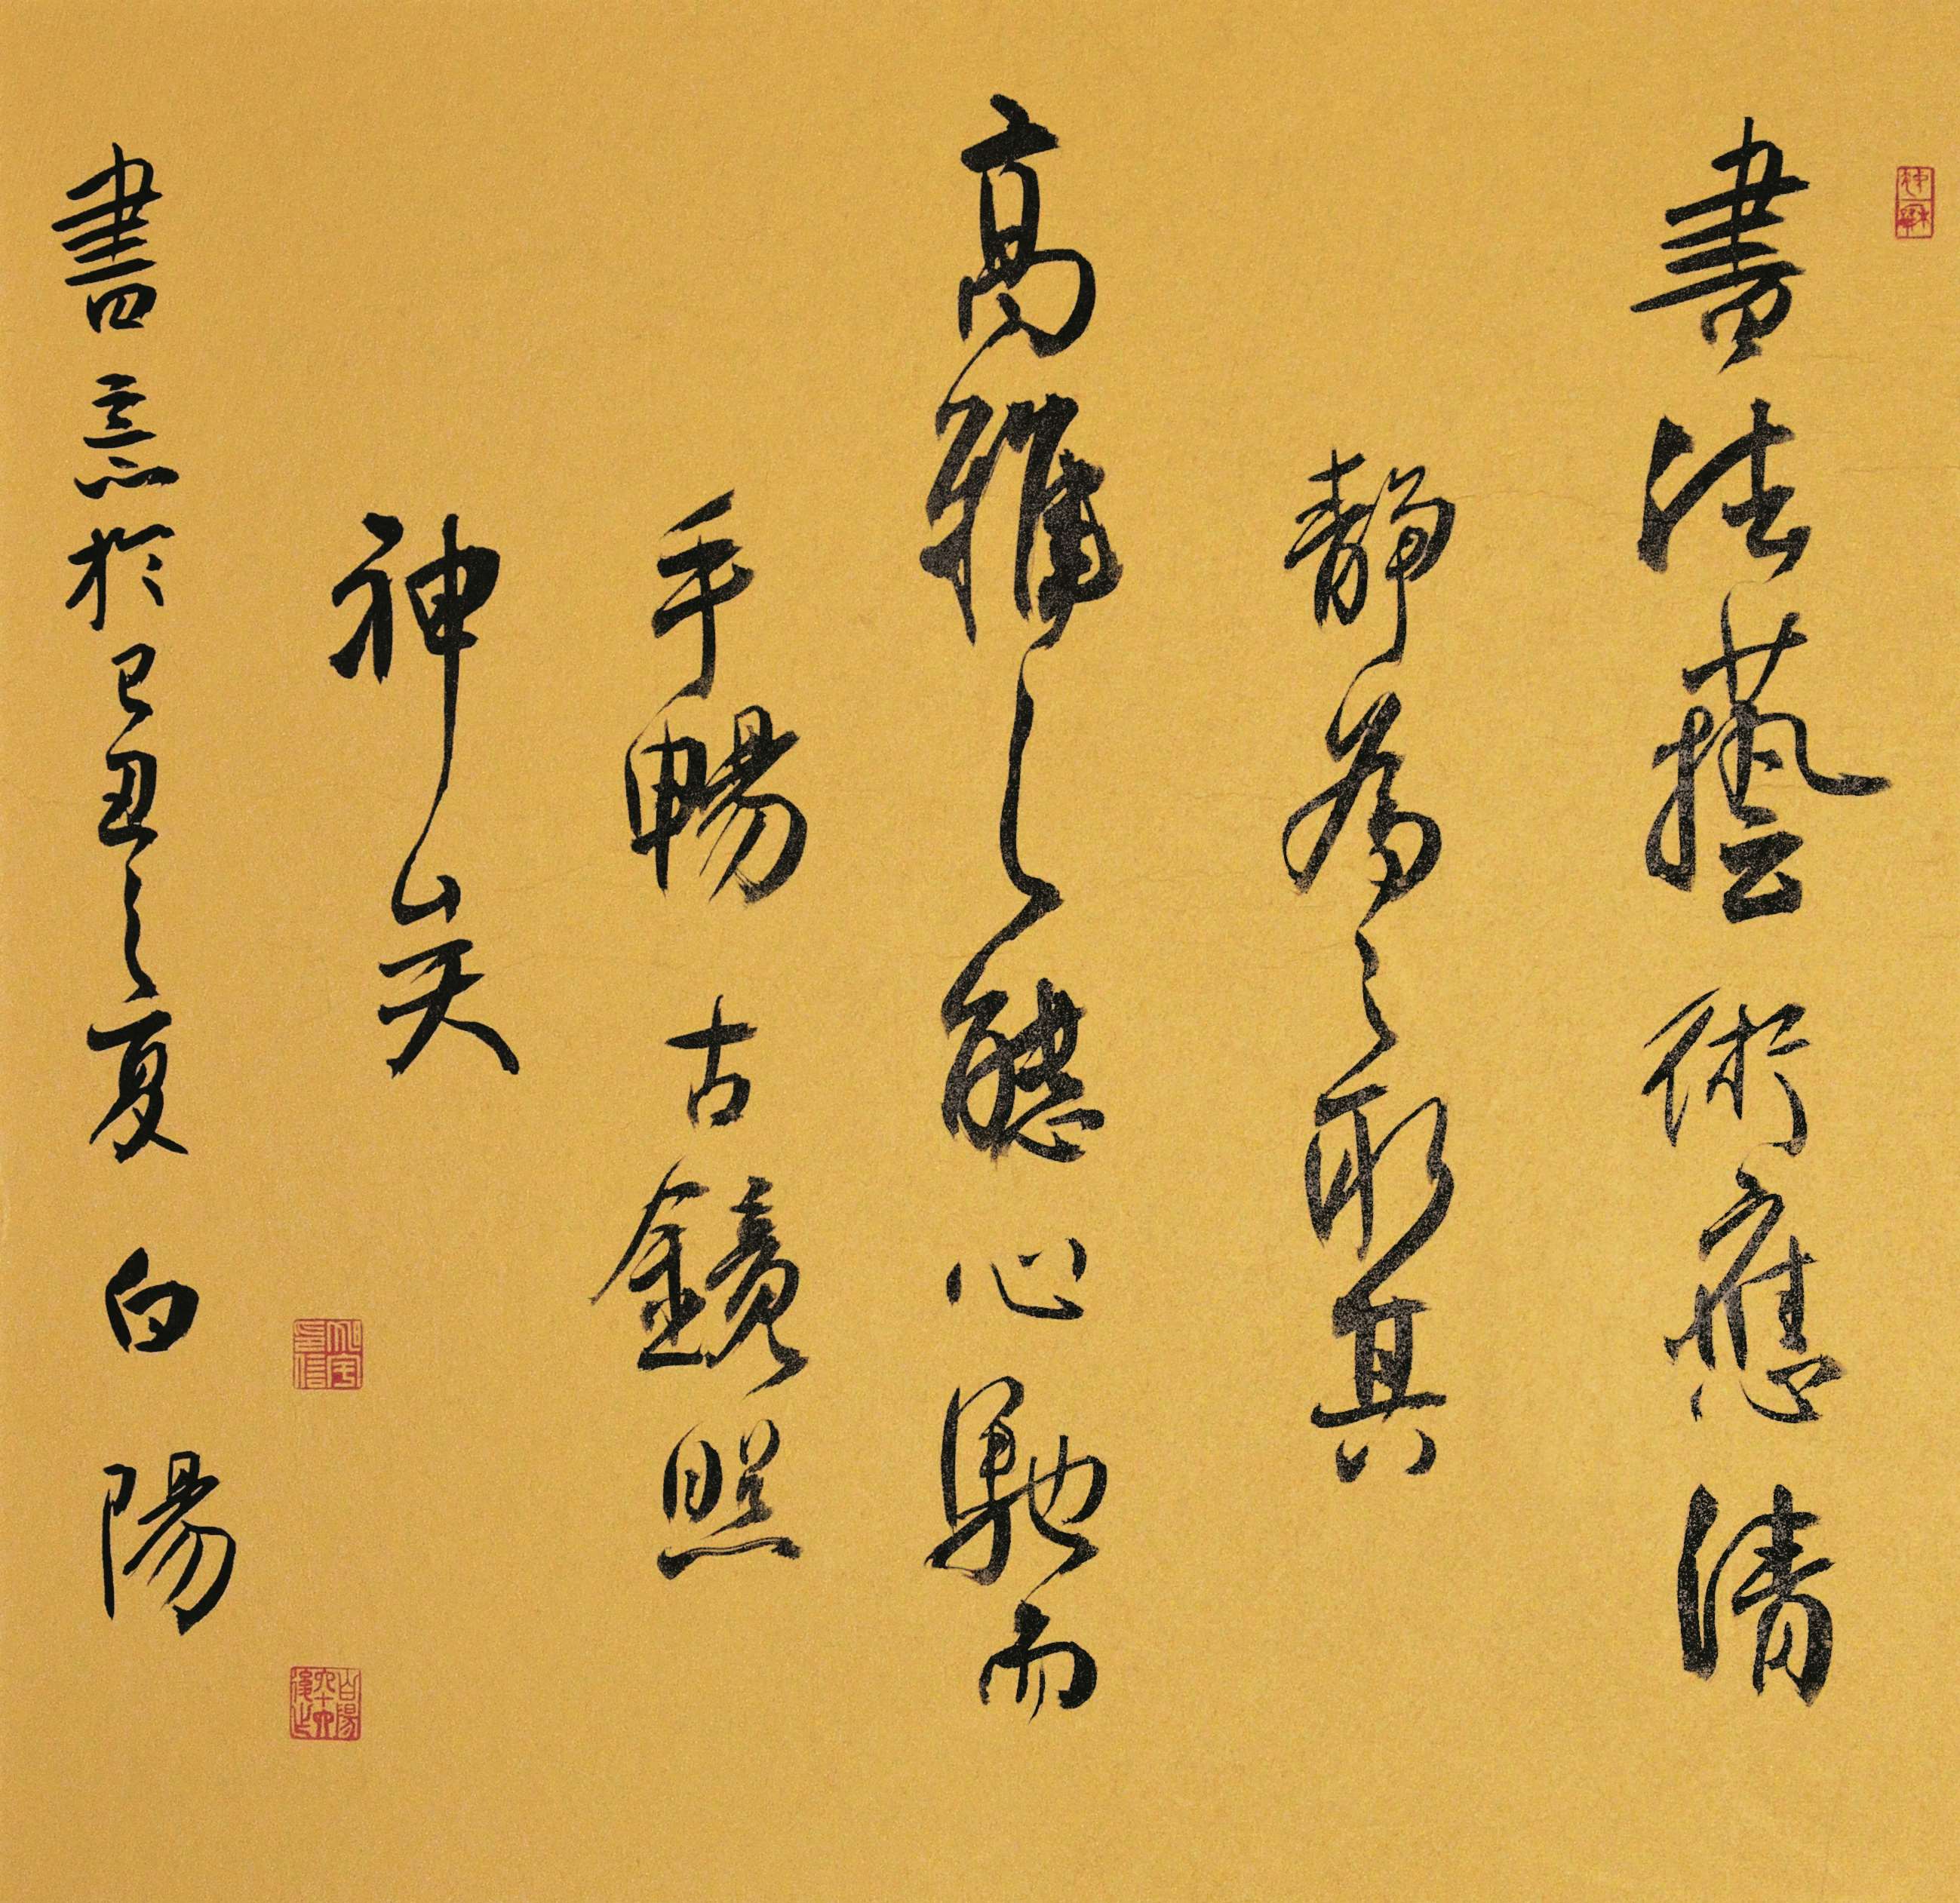 書法藝術應清
靜為之取其
高雅之態心馳而
手暢古鏡照
神矣
書意於己丑之夏白陽